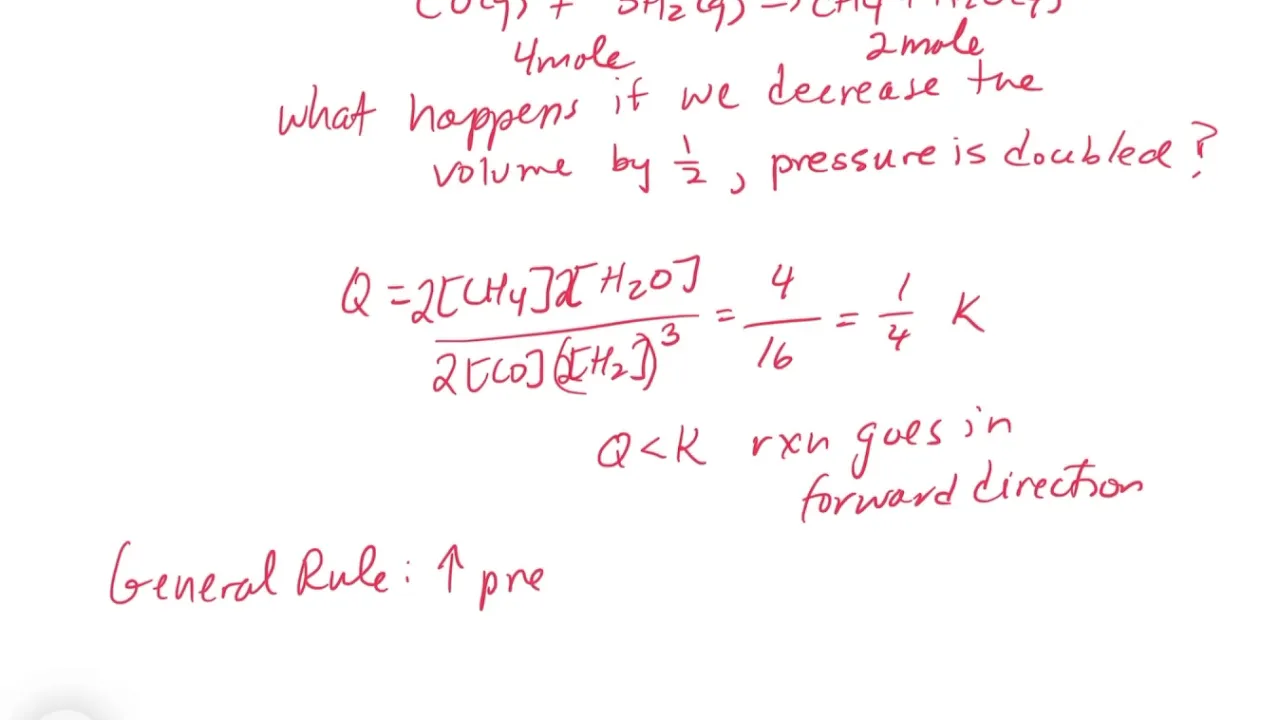 CO(g) + 3H2(g) → CH4 + H2O(g)
4mole 2mole
what happens if we decrease the
volume by 1/2, pressure is doubled?
Q = 2[CH4]2[H2O] / 2[CO](2[H2])^3 = 4/16 = 1/4 K
Q<K rxn goes in
forward direction
General Rule: ↑ pre